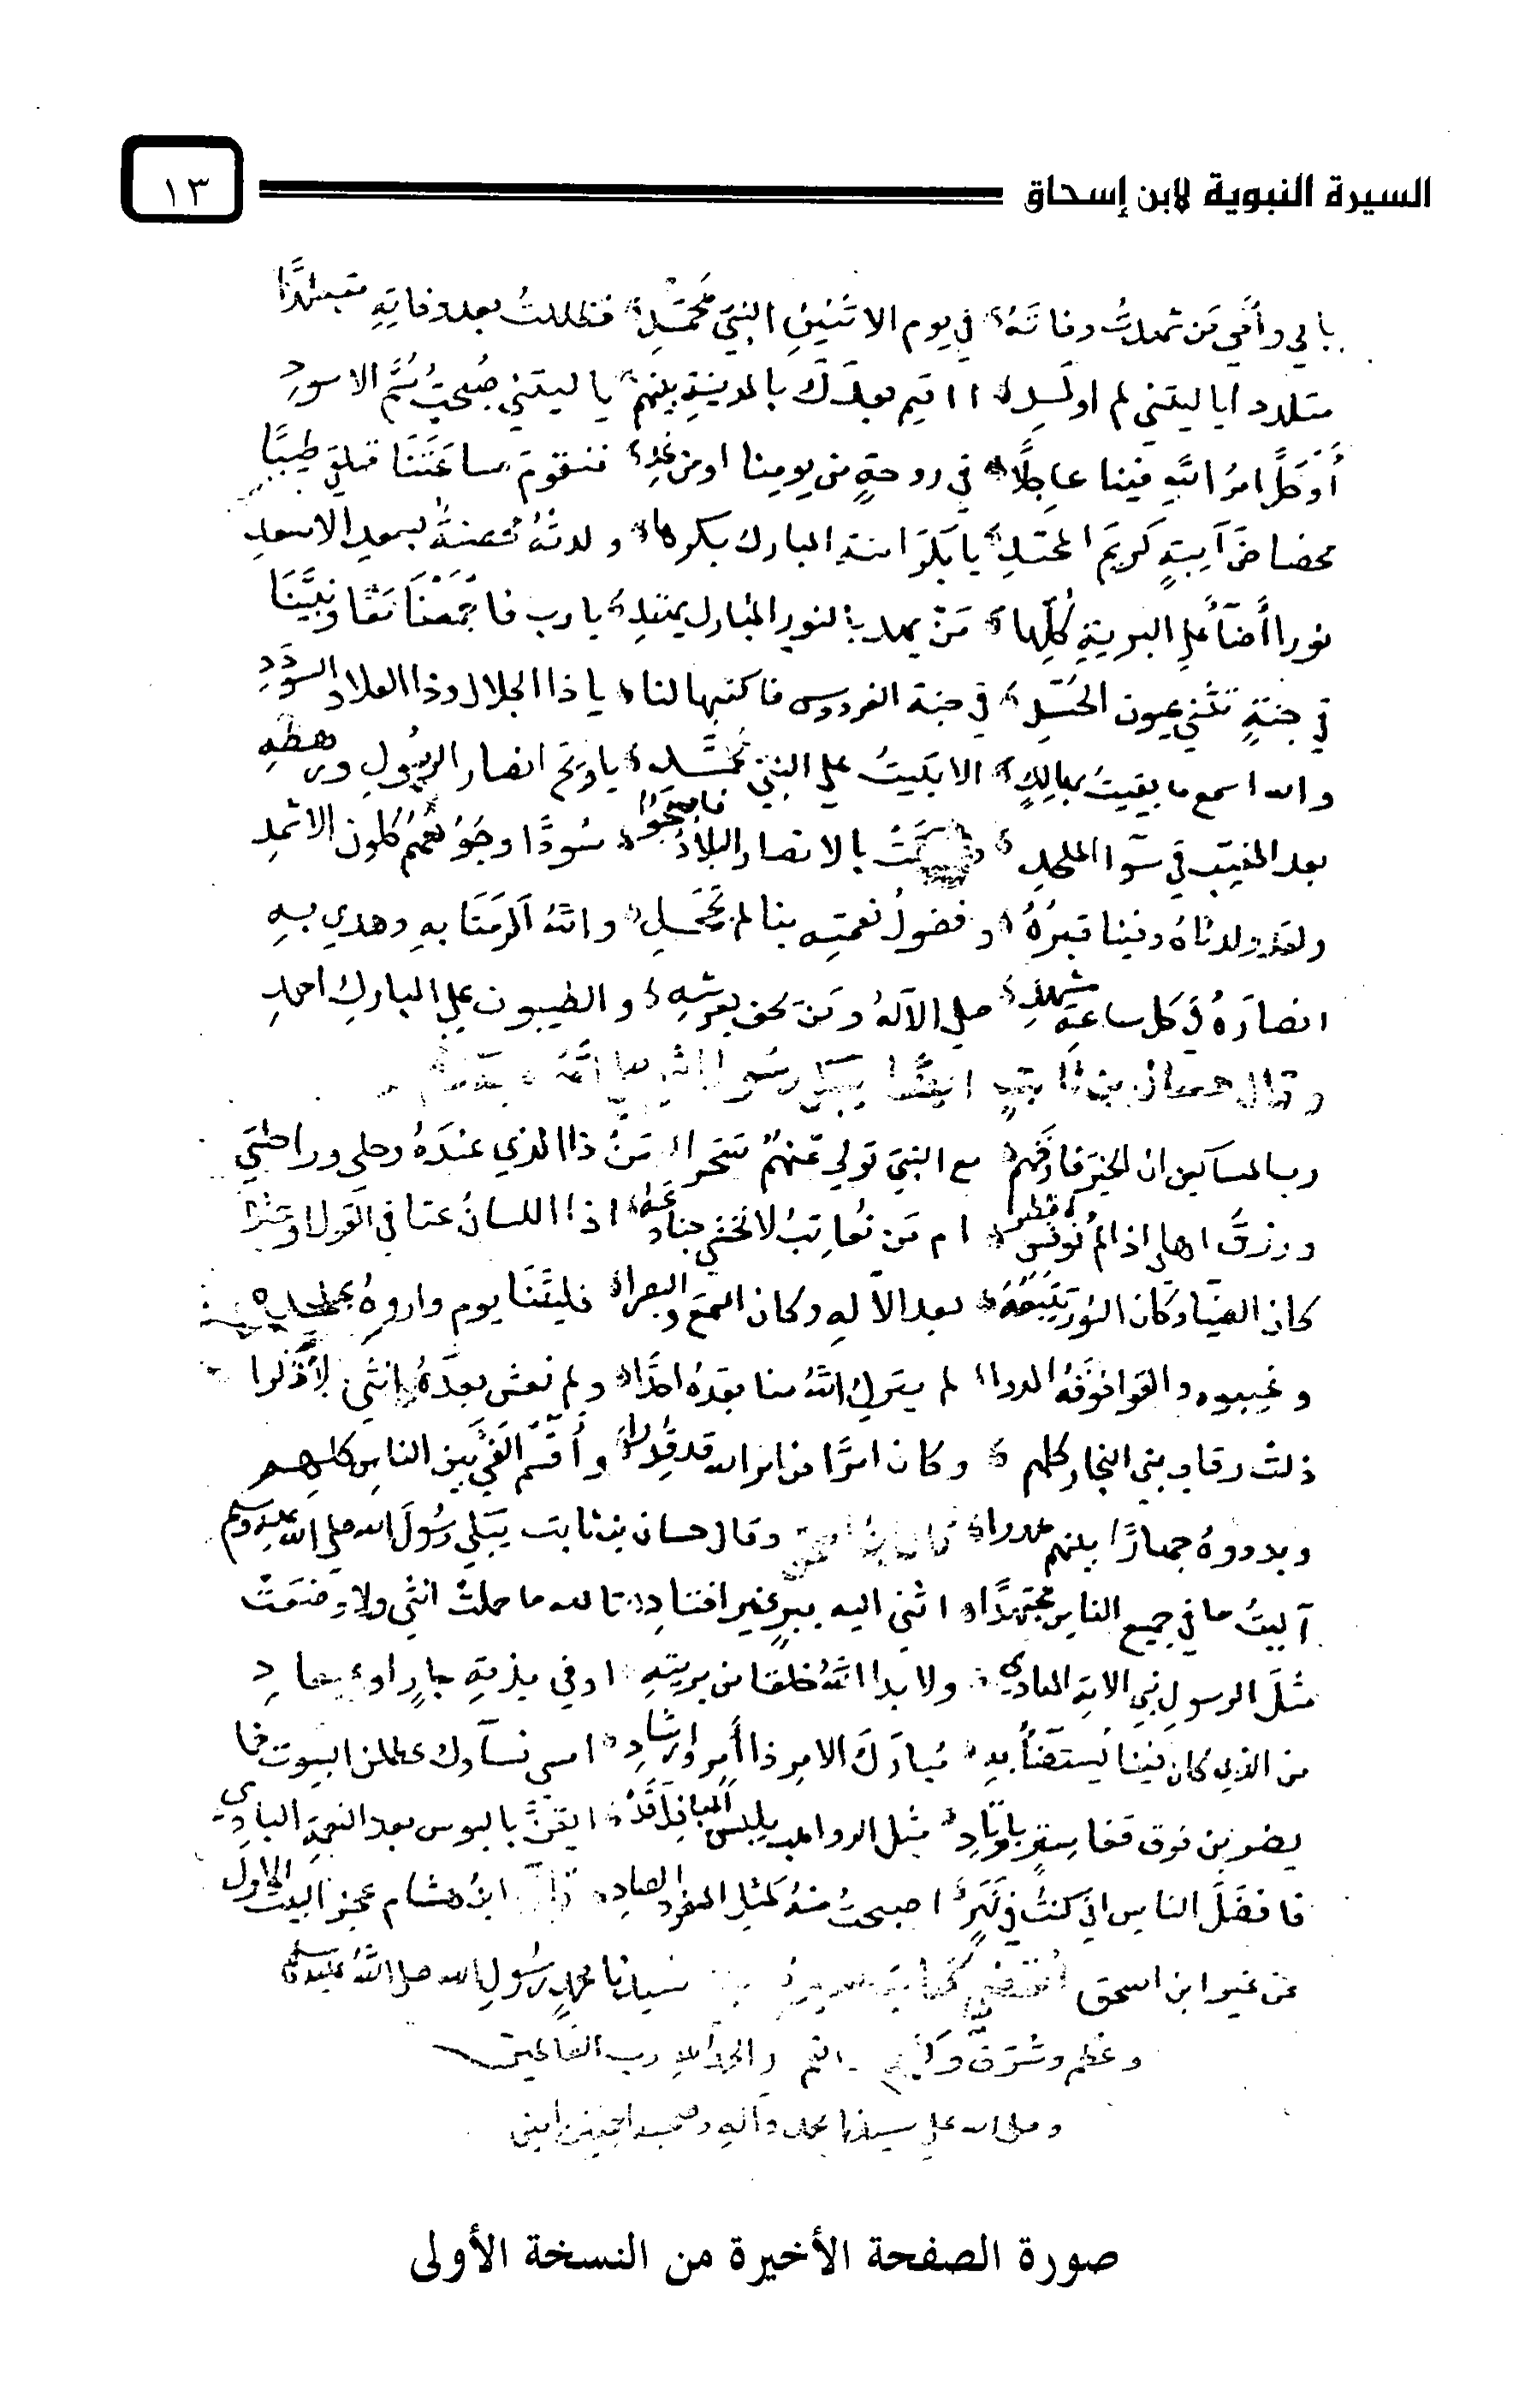 السيرة النبوية لابن إسحاق ١٣
بابي وأمي من شهدت وفاته في يوم الاثنين النبي محمد فظللت بعد وفاته متبلدا
متلددا ياليتني لم اولد ااقيم بعدك بالمدينة بينهم ياليتني صبحت سم الاسود
أوحل امر الله فينا عاجلا في روحة من يومنا او من غد فنقوم ساعتنا فنلقى طيبا
محضا ضرايبه كريم المحتد يا بكر امنة المبارك بكرها ولدته محصنة بسعد الاسعد
نورا أضآ على البرية كلها من يهد بالنور المبارك يهتد يا رب فاجمعنا معا ونبينا
في جنة تثني عيون الحسد في جنة الفردوس فاكتبها لنا يا ذا الجلال وذا العلا والسودد
والله اسمع ما بقيت بهالك الا بكيت على النبي محمد يا ويح انصار الرسول ورهطه
بعد المغيب في سوآ الملحد بالانصار البلاد فاصبحوا سودا وجوههم كلون الاثمد
ولقد ولدناه وفينا قبره وفضول نعمته بنا لم تجحد والله اكرمنا به وهدي به
انصاره في كل ساعة مشهد صلى الاله ومن يحف بعرشه والطيبون على المبارك احمد
وقال حسان بن ثابت ايضا يبكي رسول الله صلى الله
رب المساكين ان الخير فارقهم مع النبي تولى عنهم سحرا من ذا الذي عنده رحلي وراحلتي
ورزق اهلي اذا لم يونسوا المطرا ام من نعاتب لا نخشى جنادعه اذا اللسان عتا في القول او عثرا
كان الضيا وكان النور نتبعه بعد الاله وكان السمع والبصرا فليتنا يوم واروه بملحده
وغيبوه والقوا فوقه المدرا لم يترك الله منا بعده احدا ولم يعش بعده انثى ولا ذكرا
ذلت رقاب بني النجار كلهم وكان امرا من امر الله قد قدرا وأقتسم الفي بين الناس كلهم
وبددوه جهارا بينهم هدرا وقال حسان بن ثابت يبكي رسول الله صلى الله عليه وسلم
آليت ما في جميع الناس مجتهدا مني اليه ببر غير افناد تالله ما حملت انثى ولا وضعت
مثل الرسول نبي الامة الهادي ولا برا الله خلقا من بريته اوفى بذمة جار او بميعاد
من الذي كان فينا يستضآ به مبارك الامر ذا أمر وارشاد امسى نسآوك عطلن البيوت فما
يضربن فوق قفا ستر باوتاد مثل الرواهب يلبسن المباذل قد ايقن بالبوس بعد النعمة البادي
يا افضل الناس اني كنت في نهر اصبحت منه كمثل المفرد الصادي ابن هشام عجز البيت الاول
عن غير ابن اسحق سيدنا محمد رسول الله صلى الله عليه وسلم
وعظم وشرف وكرم والحمد لله رب العالمين
وصلى الله على سيدنا محمد وآله وصحبه اجمعين
صورة الصفحة الأخيرة من النسخة الأولى